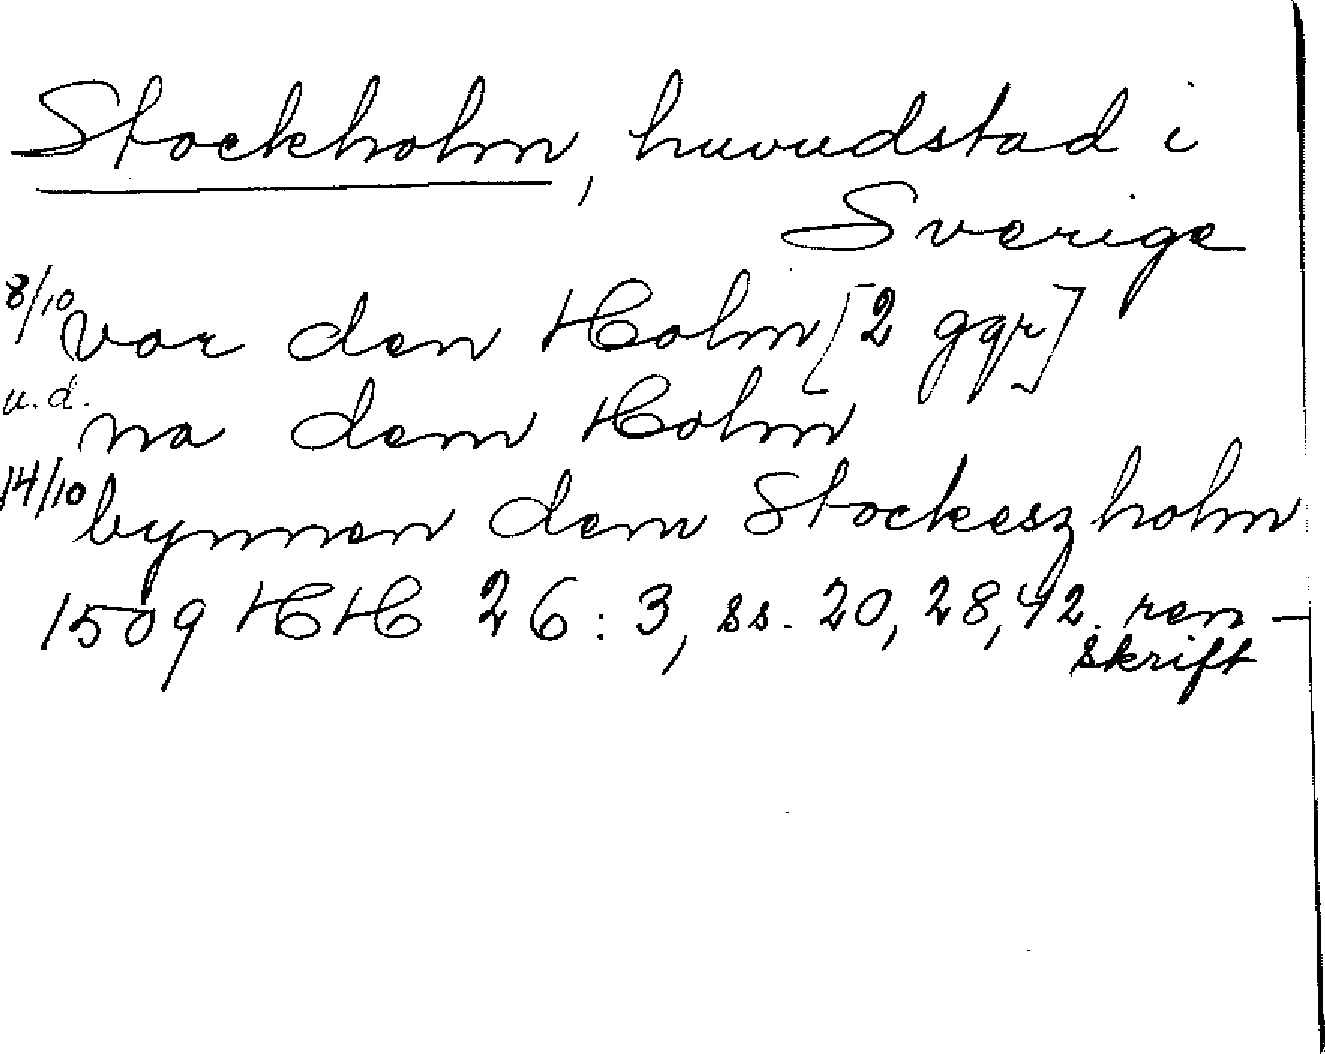 Stockholm, huvudstad i
Sverige
8/10 vor den Holm [2 ggr]
u.d. na dem Holm
14/10 bynnen dem Stockeszholm
1509 HH 26:3, ss. 20, 28, 42. ren-
skrift